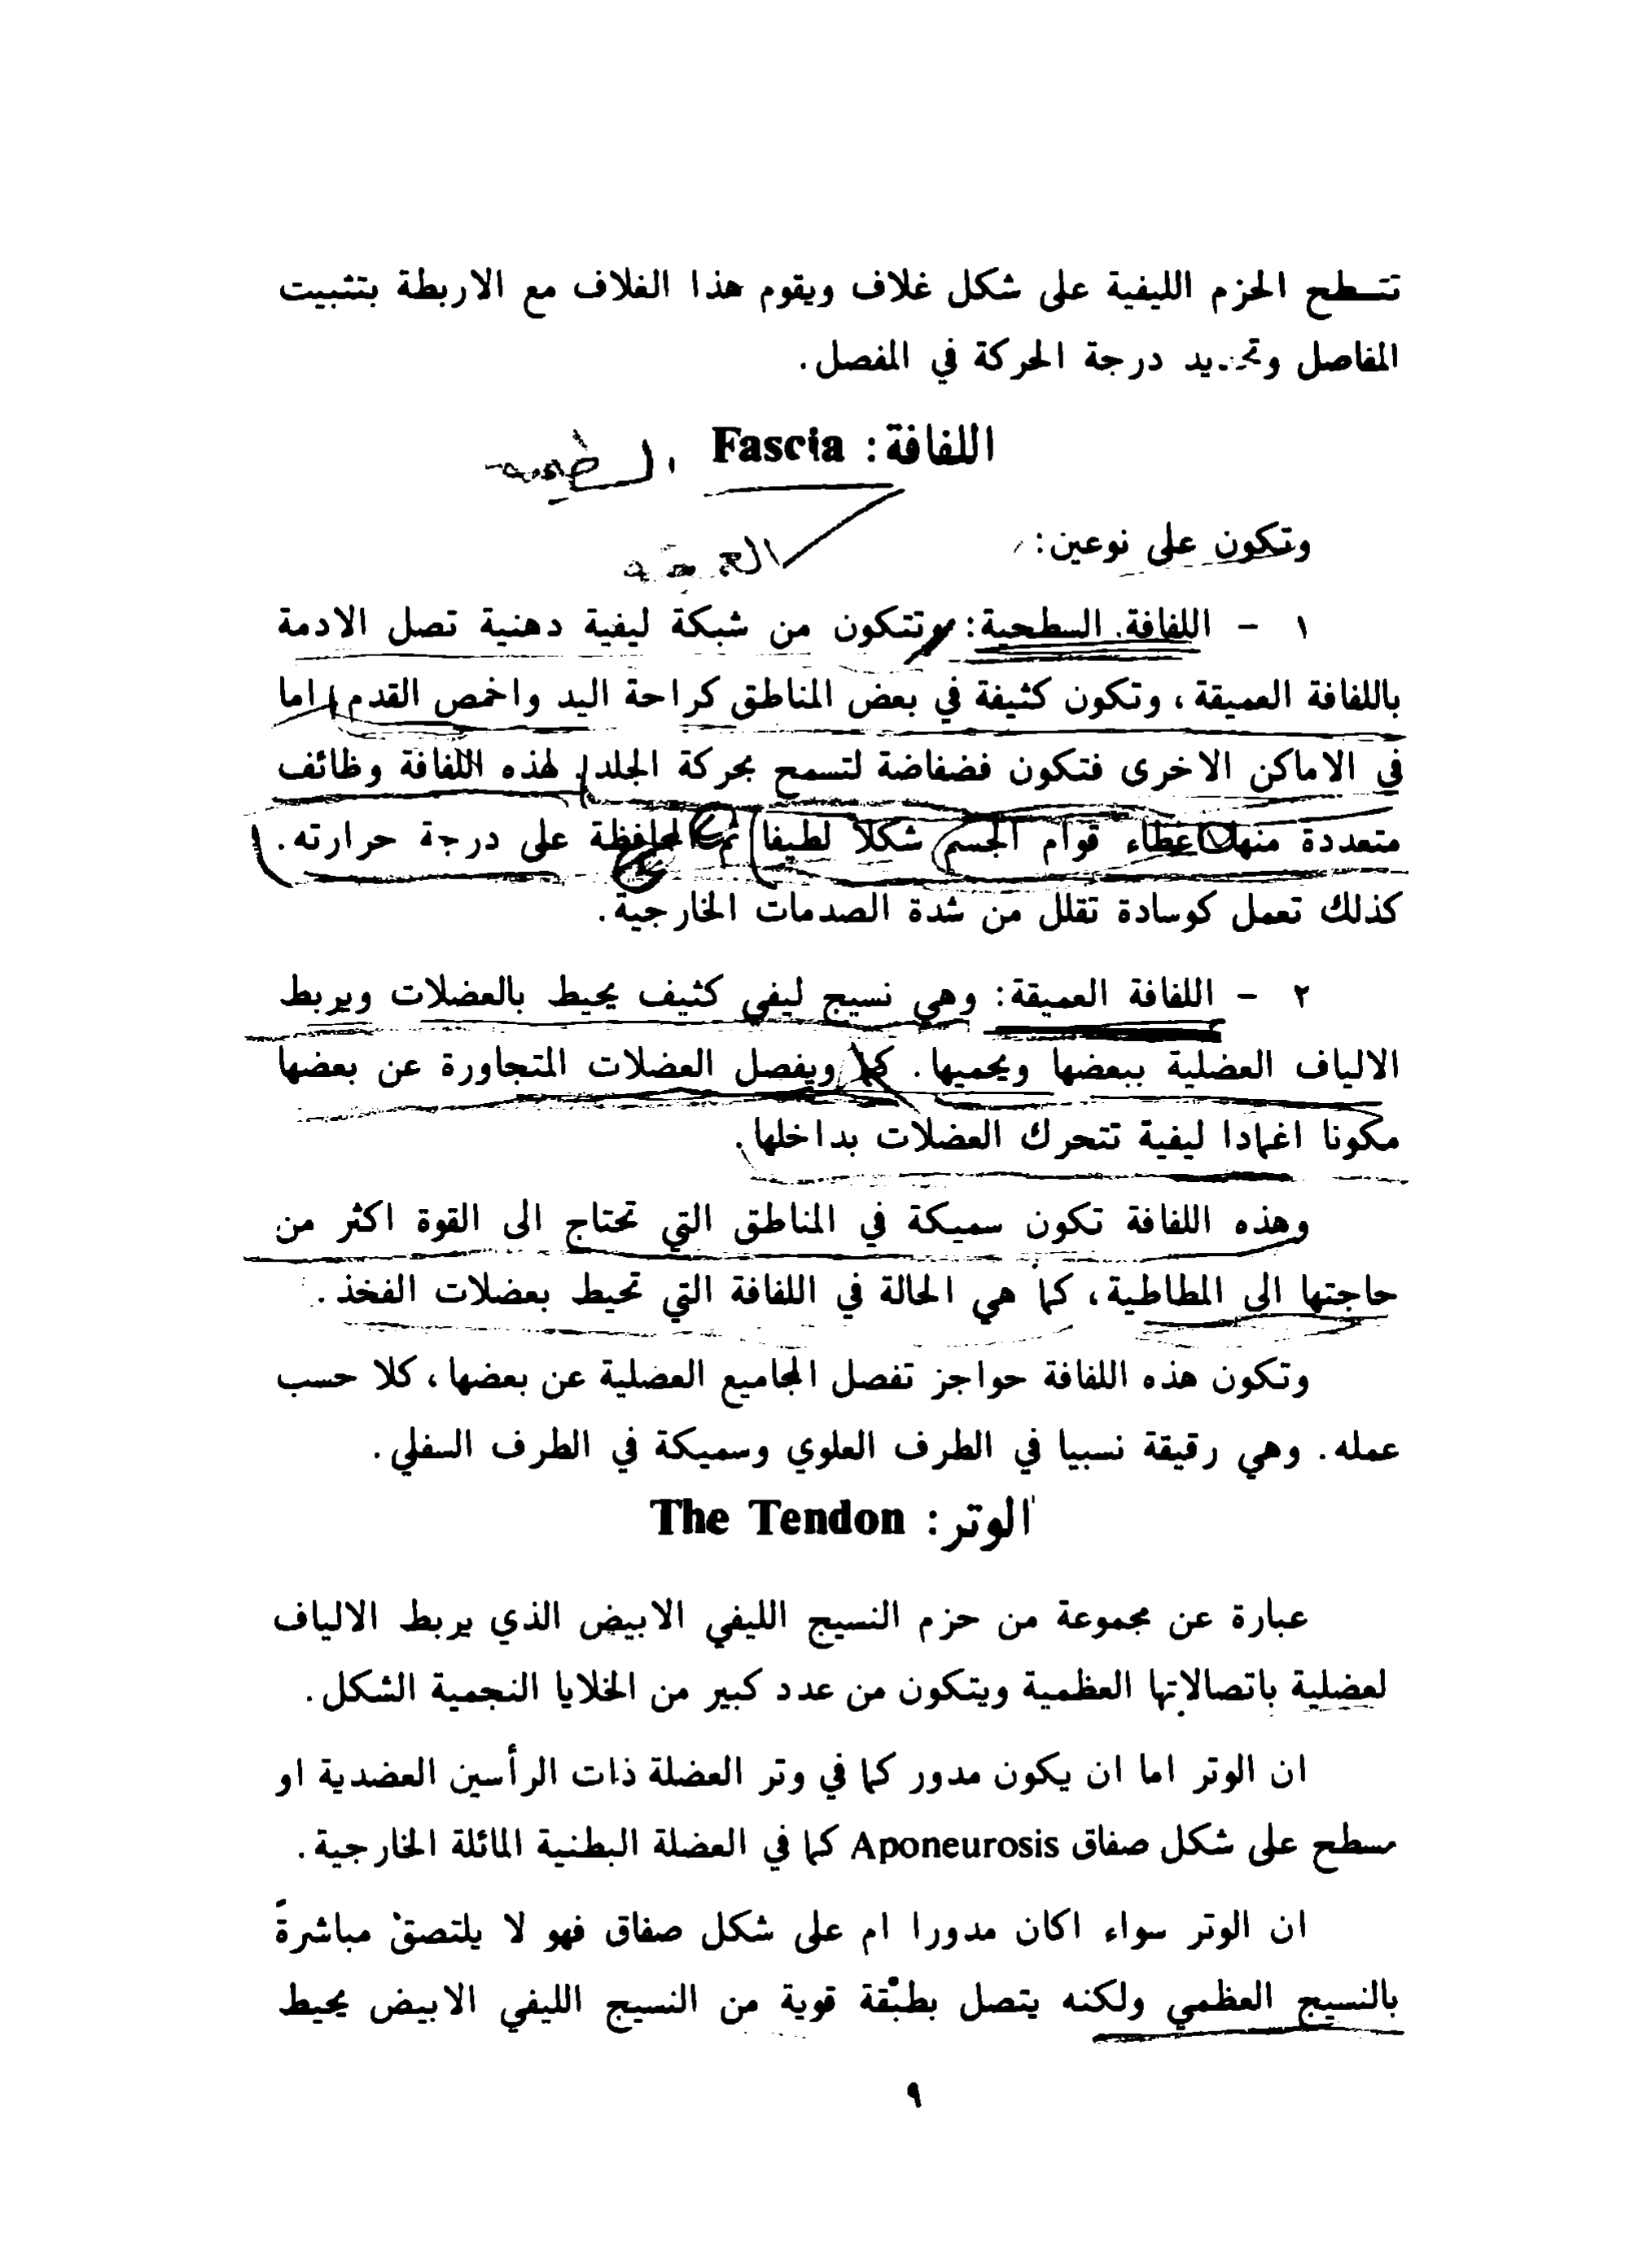 تتسطح الحزم الليفية على شكل غلاف ويقوم هذا الغلاف مع الاربطة بتثبيت
المفاصل وتحديد درجة الحركة في المفصل.
اللفافة: Fascia السطحية
وتكون على نوعين:
العميقة
١ - اللفافة السطحية: وتتكون من شبكة ليفية دهنية تصل الادمة
باللفافة العميقة، وتكون كثيفة في بعض المناطق كراحة اليد واخمص القدم، اما
في الاماكن الاخرى فتكون فضفاضة لتسمح بحركة الجلد. لهذه اللفافة وظائف
متعددة منها اغطاء قوام الجسم شكلا لطيفا ثم المحافظة على درجة حرارته.
كذلك تعمل كوسادة تقلل من شدة الصدمات الخارجية.
٢ - اللفافة العميقة: وهي نسيج ليفي كثيف يحيط بالعضلات ويربط
الالياف العضلية ببعضها ويحميها. كما ويفصل العضلات المتجاورة عن بعضها
مكونا اغمادا ليفية تتحرك العضلات بداخلها.
وهذه اللفافة تكون سميكة في المناطق التي تحتاج الى القوة اكثر من
حاجتها الى المطاطية، كما هي الحالة في اللفافة التي تحيط بعضلات الفخذ.
وتكون هذه اللفافة حواجز تفصل المجاميع العضلية عن بعضها، كلا حسب
عمله. وهي رقيقة نسبيا في الطرف العلوي وسميكة في الطرف السفلي.
الوتر: The Tendon
عبارة عن مجموعة من حزم النسيج الليفي الابيض الذي يربط الالياف
لعضلية باتصالاتها العظمية ويتكون من عدد كبير من الخلايا النجمية الشكل.
ان الوتر اما ان يكون مدور كما في وتر العضلة ذات الرأسين العضدية او
مسطح على شكل صفاق Aponeurosis كما في العضلة البطنية المائلة الخارجية.
ان الوتر سواء اكان مدورا ام على شكل صفاق فهو لا يلتصق مباشرةً
بالنسيج العظمي ولكنه يتصل بطبقة قوية من النسيج الليفي الابيض يحيط
٩